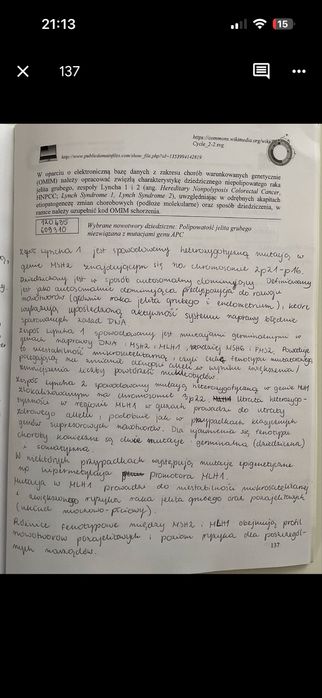 21:13
15
137
https://commons.wikimedia.org/wiki
Cycle_2-2.svg
http://www.publicdomainfiles.com/show_file.php?id=13539941142819
W oparciu o elektroniczną bazę danych z zakresu chorób warunkowanych genetycznie
(OMIM) należy opracować zwięzłą charakterystykę dziedzicznego niepolipowatego raka
jelita grubego, zespoły Lyncha 1 i 2 (ang. Hereditary Nonpolyposis Colorectal Cancer,
HNPCC; Lynch Syndrome 1, Lynch Syndrome 2), uwzględniając w odrębnych akapitach
etiopatogenezę zmian chorobowych (podłoże molekularne) oraz sposób dziedziczenia, w
ramce należy uzupełnić kod OMIM schorzenia.
120435
609310
Wybrane nowotwory dziedziczne: Polipowatość jelita grubego
niezwiązana z mutacjami genu APC
Zespół Lyncha 1 jest spowodowany heterozygotyczną mutacją w
genie MSH2 znajdującym się na chromosomie 2p21-p16.
Dziedziczony jest w sposób autosomalny dominujący. Definiowany
jest jako autosomalnie dominująca predyspozycja do
nowotworów (głównie raka jelita grubego i endometrium), które
wykazują upośledzoną aktywność systemu naprawy błędnie
sparowanych zasad DNA.
Zespół Lyncha 1 spowodowany jest mutacjami germinalnymi w
genach naprawy DNA: MSH2 i MLH1, rzadziej MSH6 i PMS2. Powoduje
to niestabilność mikrosatelitarną, czyli
polegający na zmianie długości alleli w wyniku zwiększenia/
zmniejszenia liczby powtórzeń nukleotydów.
Zespół Lyncha 2 spowodowany mutacją heterozygotyczną w genie MLH1
zlokalizowanym na chromosomie 3p22. Utrata heterozygo-
tyczności w regionie MLH1 w guzach prowadzi do utraty
zdrowego allelu i podobnie jak w przypadkach klasycznych
genów supresorowych nowotworów. Dla ujawnienia się fenotypu
choroby konieczne są dwie mutacje: germinalna (dziedziczna)
+ somatyczna.
W niektórych przypadkach występują mutacje epigenetyczne
np hipermetylacja promotora MLH1.
Mutacja w MLH1 prowadzi do niestabilności mikrosatelitarnej
+ zwiększonego ryzyka raka jelita grubego oraz pozajelitowych
(układ moczowo-płciowy).
Różnice fenotypowe między MSH2 i MLH1 obejmują profil
nowotworów pozajelitowych i poziom ryzyka dla poszczegól-
nych narządów.
137